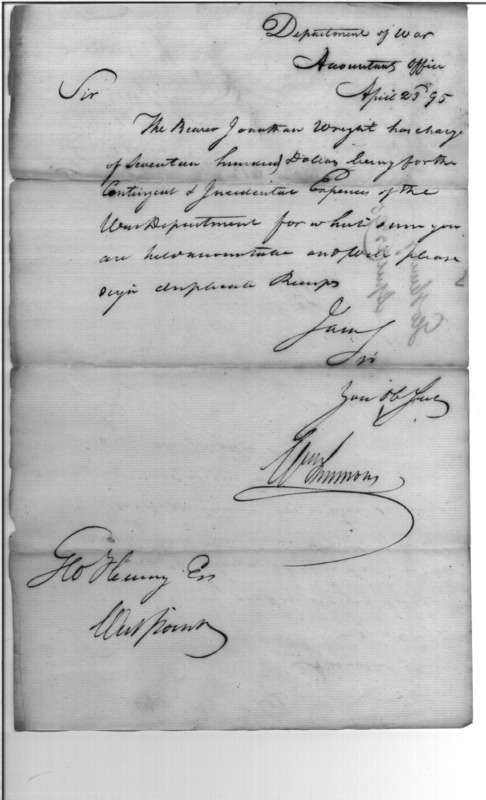 Department of War
Accountants Office
April 23d 95
Sir
The Bearer Jonathan Wright has charge
of Seventeen hundred Dollars being for the
Contingent & Incidental Expences of the
War Department for which sum you
are held accountable and will please
sign duplicate Receipts
I am
Sir
Your Ob Servt
Wm Simmons
Geo Fleming Esq
West Point